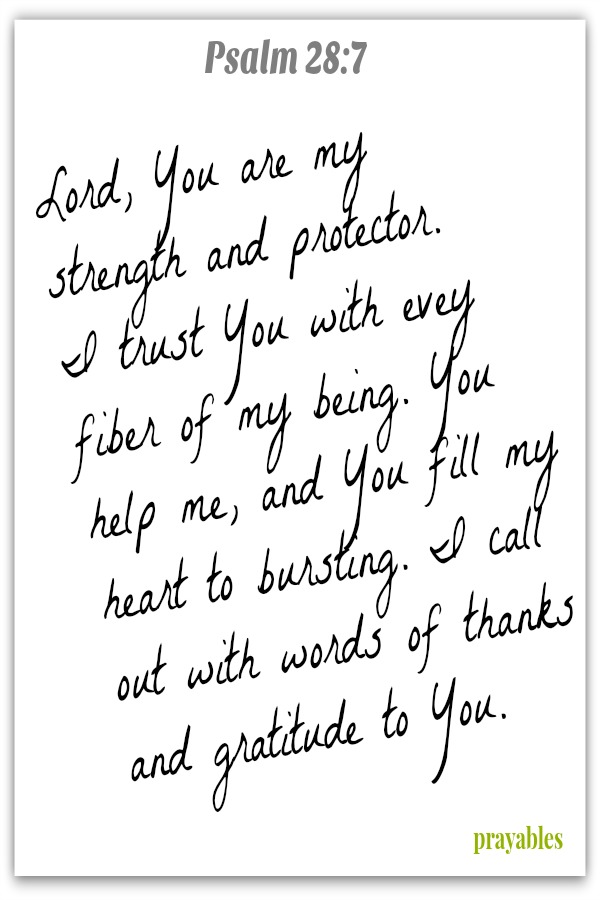 Psalm 28:7
Lord, You are my
strength and protector.
I trust You with evey
fiber of my being. You
help me, and You fill my
heart to bursting. I call
out with words of thanks
and gratitude to You.
prayables